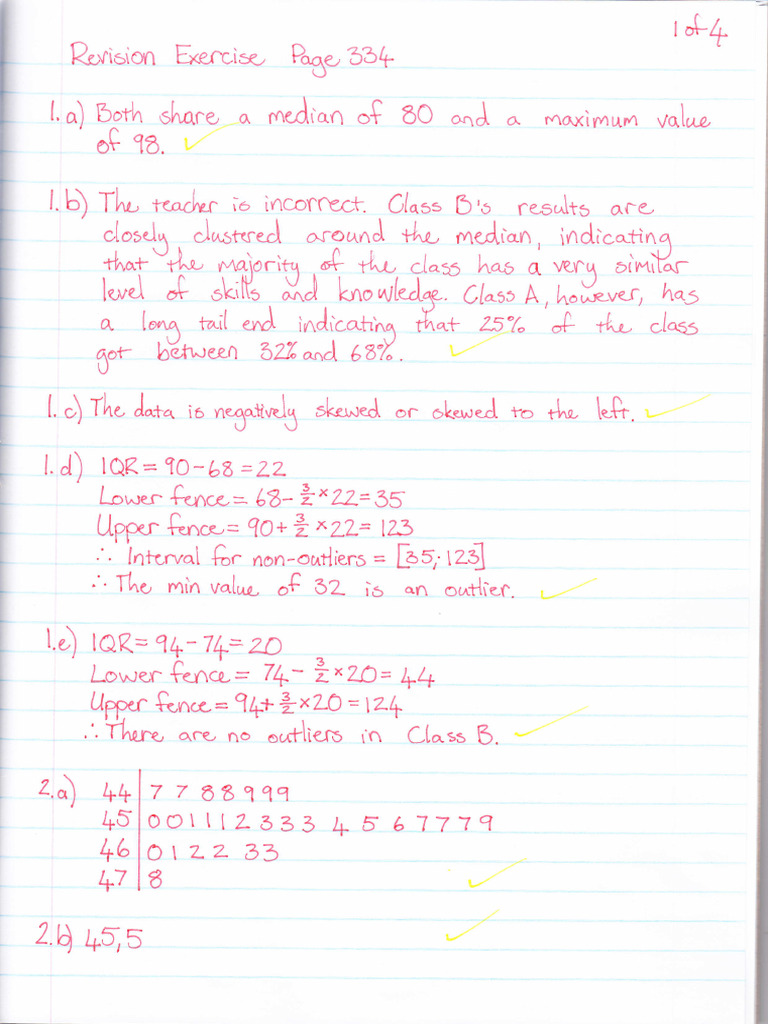 1 of 4
Revision Exercise Page 334
1.a) Both share a median of 80 and a maximum value
of 98.
1.b) The teacher is incorrect. Class B's results are
closely clustered around the median, indicating
that the majority of the class has a very similar
level of skills and knowledge. Class A, however, has
a long tail end indicating that 25% of the class
got between 32% and 68%.
1.c) The data is negatively skewed or skewed to the left.
1.d) IQR = 90-68 = 22
Lower fence = 68 - 3/2 × 22 = 35
Upper fence = 90 + 3/2 × 22 = 123
∴ Interval for non-outliers = [35; 123]
∴ The min value of 32 is an outlier.
1.e) IQR = 94-74 = 20
Lower fence = 74 - 3/2 × 20 = 44
Upper fence = 94 + 3/2 × 20 = 124
∴ There are no outliers in Class B.
2.a) 44 | 7 7 8 8 9 9 9
45 | 0 0 1 1 1 2 3 3 3 4 5 6 7 7 7 9
46 | 0 1 2 2 3 3
47 | 8
2.b) 45,5